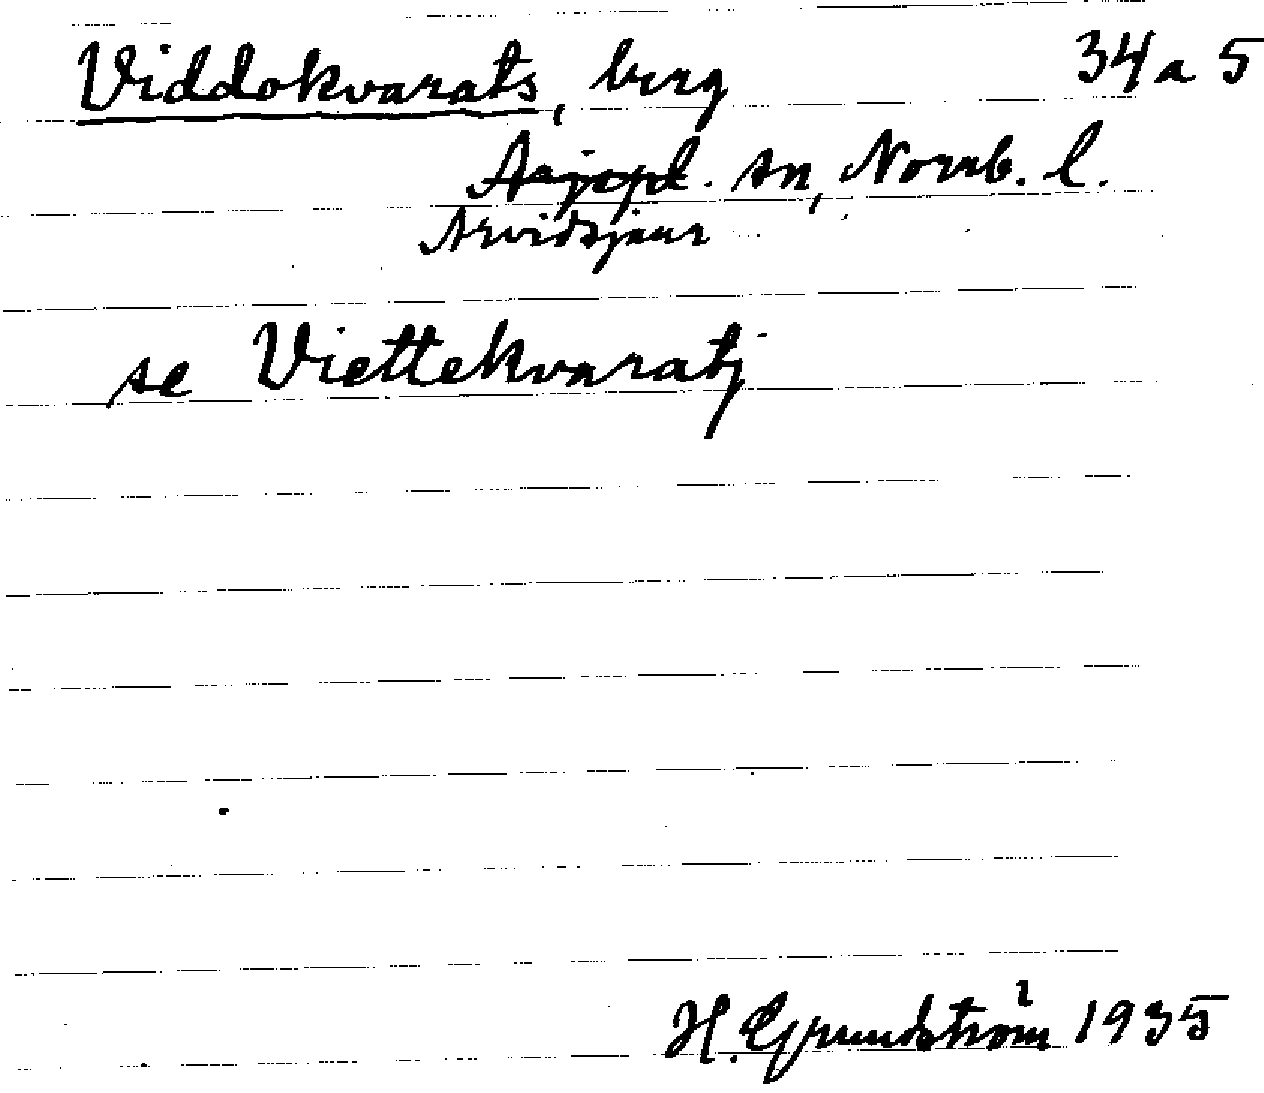 Viddokvarats, berg 34 a 5
Arjepl. sn, Norrb. l.
Arvidsjaur
se Viettekvaratj
H. Grundström 1935